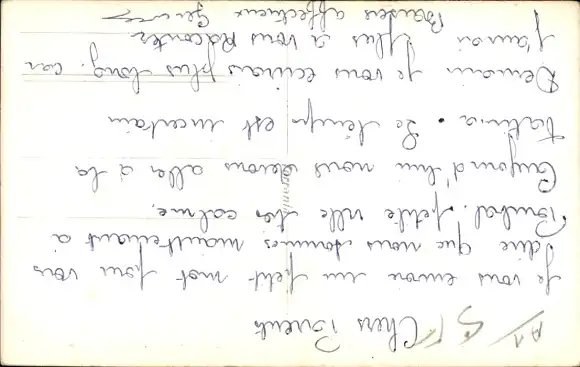 Chers Parents
Je vous envoie un petit mot pour vous
dire que nous sommes maintenant à
petite ville très calme.
Aujourd'hui nous devons aller à la
Le temps est incertain
Demain je vous écrirais plus long. car
j'aurai plus à vous raconter
Baisers affectueux